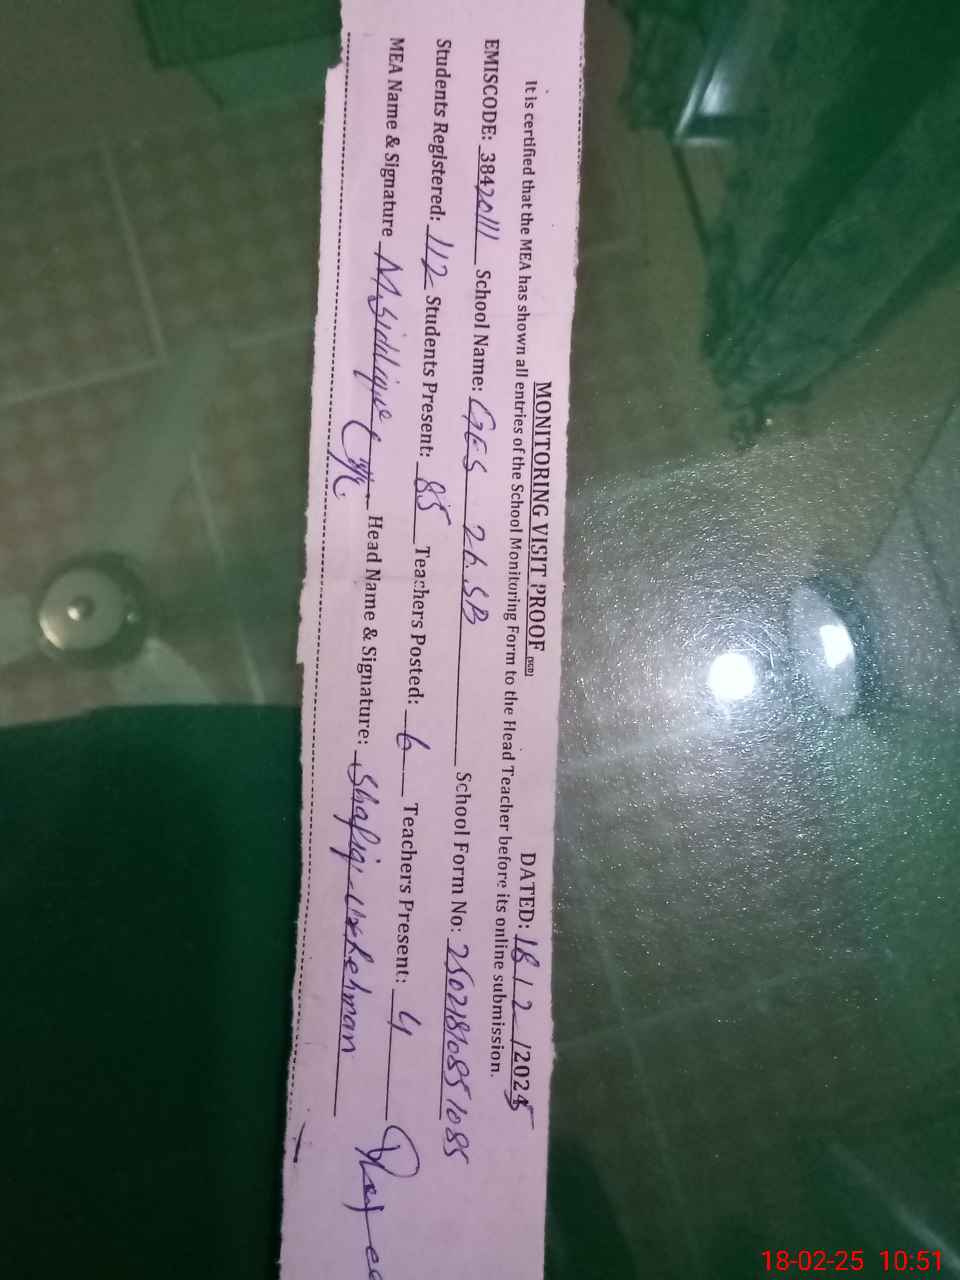 MONITORING VISIT PROOF DATED: 18 / 2 /2025
It is certified that the MEA has shown all entries of the School Monitoring Form to the Head Teacher before its online submission.
EMISCODE: 38420111 School Name: GES 26.SB School Form No: 25021810851085
Students Registered: 112 Students Present: 85 Teachers Posted: 6 Teachers Present: 4
MEA Name & Signature M.Siddique Head Name & Signature: Shafiq-ur-Rehman
18-02-25 10:51